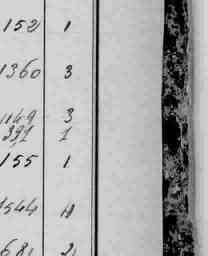 152 1
1360 3
1149 3
391 1
155 1
1544
681 2